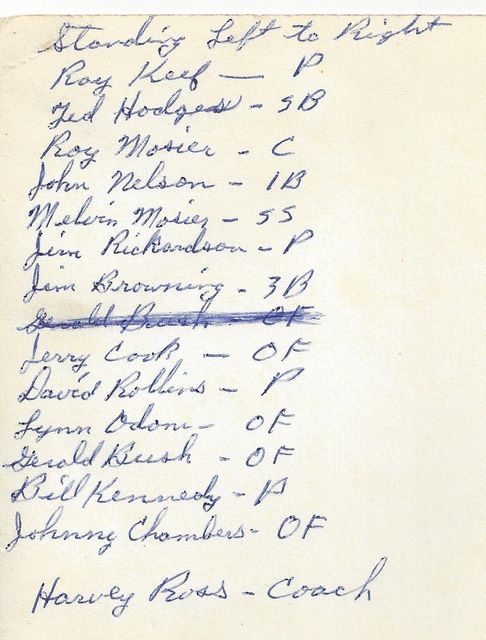 Standing Left to Right
Roy Keef — P
Ted Hodges - SB
Roy Mosier - C
John Nelson - 1B
Melvin Mosier - SS
Jim Rickardson - P
Jim Browning - 3B
Gerald Bush - OF
Jerry Cook — OF
David Rollins - P
Lynn Odom - OF
Gerald Bush - OF
Bill Kennedy - P
Johnny Chambers - OF
Harvey Ross - Coach